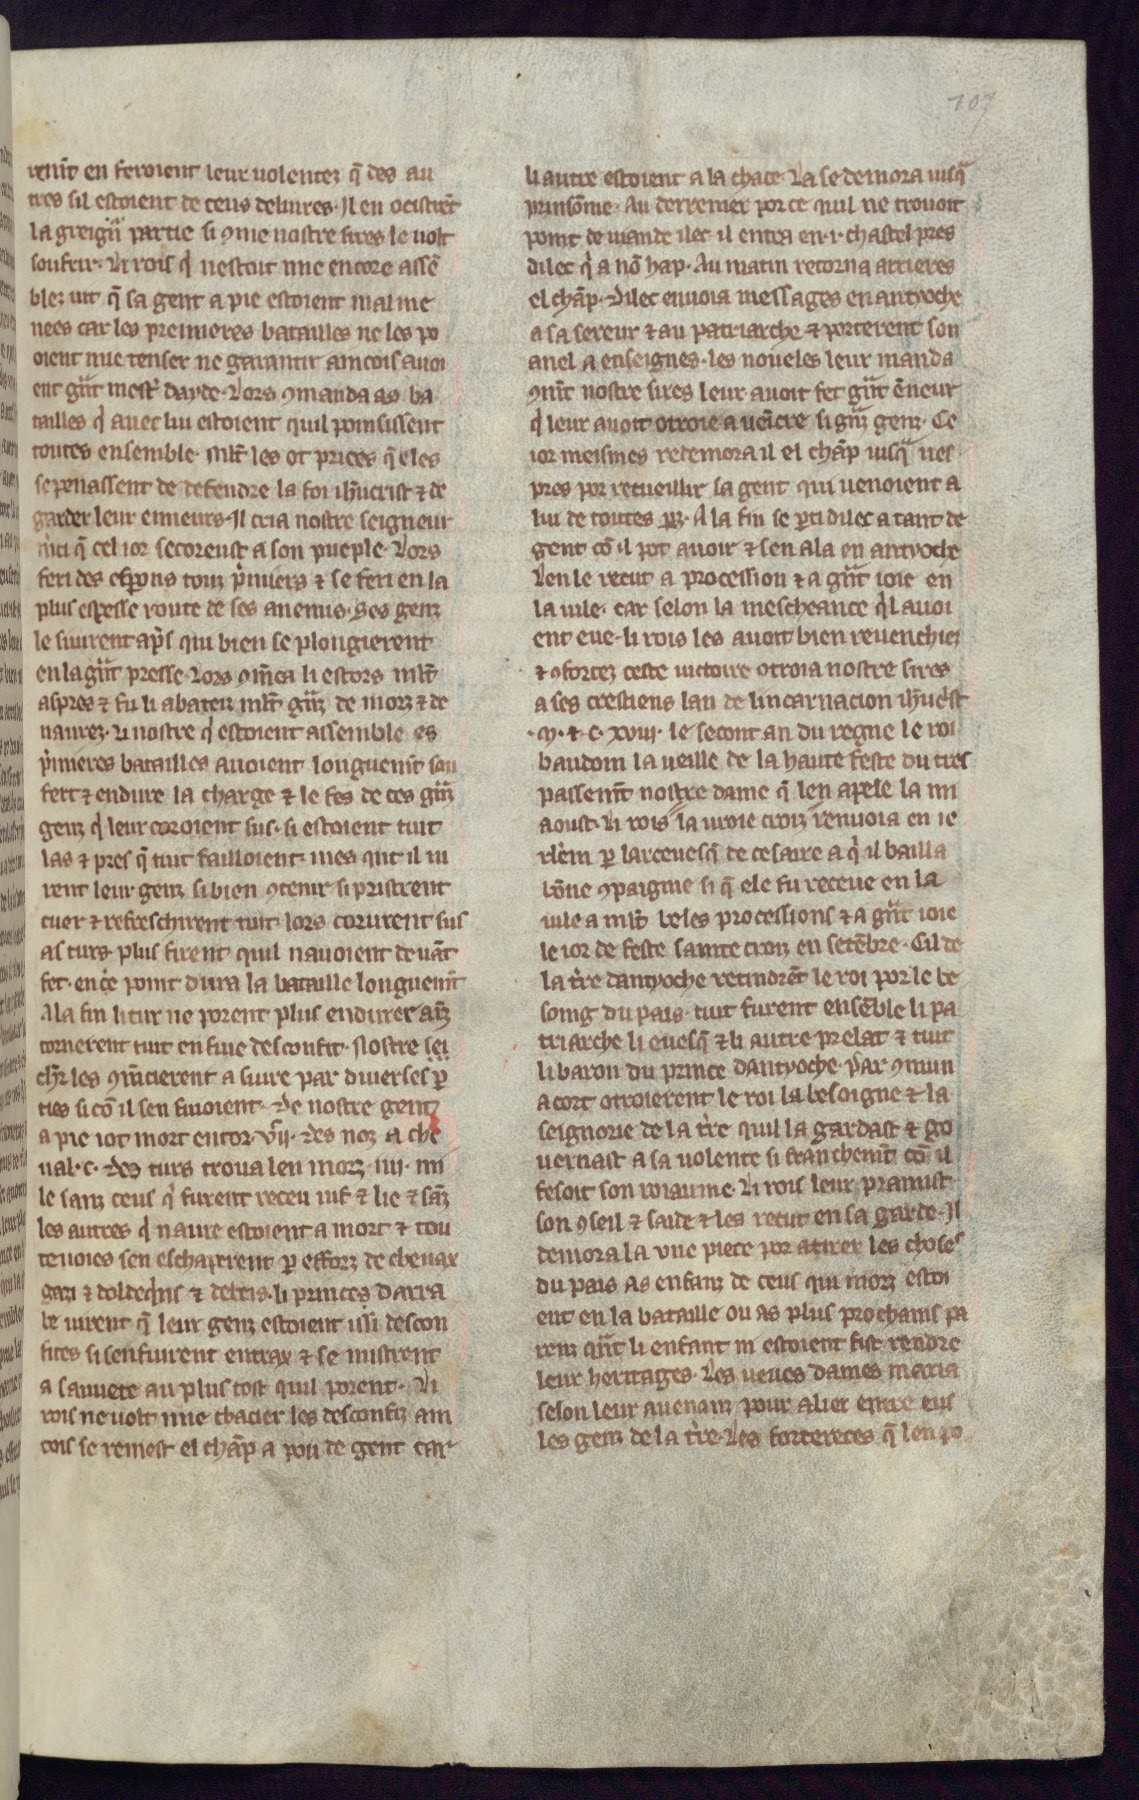 107
rent en feroient leur volentez q̃ des au
tres sil estoient de ceus deliures. Il en ocistrẽt
la greigñ partie si ꝯme nostre sires le volt
soufrir. Li rois q̇ nestoit mie encore assẽ
blez uit q̃ sa gent a pie estoient mal me
nees car les premieres batailles ne les po
oient mie tenser ne garantir aincois auoi
ent gñt mest᷑ dayde. Lors ꝯmanda as ba
tailles q̇ auec lui estoient quil poinsissent
toutes ensemble. Ml̃t les ot priees q̃ eles
se penassent de defendre la foi ih̃ucrist ⁊ de
garder leur enneurs. Il cria nostre seigneur
m̃ci q̃ cel ior secoreust a son pueple. Lors
feri des esp̱ons touz p̃miers ⁊ se feri en la
plus espesse route de ses anemis. Ses genz
le suirent ap̃s qui bien se plongierent
en la gñt presse. Lors ꝯm̃ca li estors ml̃t
aspres ⁊ fu li abateiz ml̃t gñz de morz ⁊ de
naurez. Li nostre q̇ estoient assemble es
p̃mieres batailles auoient longuem̃t sou
fert ⁊ endure la charge ⁊ le fes de ces gñz
genz q̇ leur coroient sus. si estoient tuit
las ⁊ pres q̃ tuit failloient. mes qñt il ui
rent leur genz si bien ꝯtenir si pristrent
cuer ⁊ refreschirent tuit. lors corurent sus
as turs plus firent quil nauoient deuãt
fet. en ce point dura la bataille longuem̃t
A la fin li tur ne porent plus endurer aĩz
tornerent tuit en fuie desconfit. Nostre sei
ch̃r les ꝯm̃cierent a siure par diuerses p̱
ties si cõ il sen fuioient. De nostre gent
a pie iot mort entor .vij. des noz a che
ual .c. des turs troua len morz .iiij. mi
le sanz ceus q̇ furent receu uif ⁊ lie ⁊ sãz
les autres q̇ naure estoient a mort ⁊ tou
teuoies sen eschaperent p̱ efforz de cheuax
gazi ⁊ doldeq̃ns ⁊ debeis. li princes darra
be uirent q̃ leur genz estoient issi descon
fites si senfuirent entrax ⁊ se mistrent
a sauuete au plus tost quil porent. Li
rois ne volt mie chacier les desconfiz ain
cois se remest el chãp a pou de gent car
li autre estoient a la chace. La se demora iusq̃
prinsõme. Au derrenier por ce quil ne trouoit
point de uiande ilec. il entra en .i. chastel pres
dilec q̇ a nõ hap. Au matin retorna arrieres
el chãp. Dilec enuoia messages en antyoche
a sa sereur ⁊ au patriarche ⁊ porterent son
anel a enseignes. les noueles leur manda
ꝯm̃t nostre sires leur auoit fet gñt ẽneur
q̇ leur auoit otroie a ueincre si gñz genz. Ce
ior meismes redemora il el chãp iusq̃ ues
pres por recueillir sa gent qui uenoient a
lui de toutes p̱z. A la fin se p̱ti dilec a tant de
gent cõ il pot auoir ⁊ sen ala en antyoche
Len le recut a procession ⁊ a gñt ioie en
la uile. car selon la mescheance q̃l auoi
ent eue. li rois les auoit bien reuenchiez
⁊ ꝯfortez ceste uictoire otroia nostre sires
a ses crestiens lan de lincarnacion ih̃ucrist
.m. ⁊ .c. xviij. le secont an du regne le roi
baudoin la ueille de la haute feste du tres
passem̃t nostre dame q̃ len apele la mi
aoust. Li rois la uroie croiz renuoia en ie
rl̃em p̱ larceuesq̃ de cesaire a q̇ il bailla
bõne ꝯpaignie si q̃ ele fu receue en la
uile a ml̃t beles processions ⁊ a gñt ioie
le ior de feste sainte croiz en setẽbre. Cil de
la t̃re dantyoche retindrẽt le roi por le be
soing du pais. tuit furent ensẽble li pa
triarche li euesq̃ ⁊ li autre prelat ⁊ tuit
li baron du prince dantyoche. Par ꝯmun
acort otroierent le roi la besoigne ⁊ la
seignorie de la t̃re quil la gardast ⁊ go
uernast a sa uolente si franchem̃t cõ il
fesoit son roiaume. Li rois leur pramist
son ꝯseil ⁊ saide ⁊ les recut en sa garde. Il
demora la une piece por atirer les choses
du pais as enfanz de ceus qui morz estoi
ent en la bataille ou as plus prochains pa
renz qñt li enfant ni estoient fist rendre
leur heritages. Les ueues dames maria
selon leur auenanz pour alier entre eus
les genz de la t̃re. Les fortereces q̃ len po